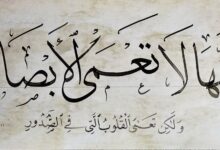 ها لا تعمى الأبصا
ولكن تعمى القلوب التي في الصدور